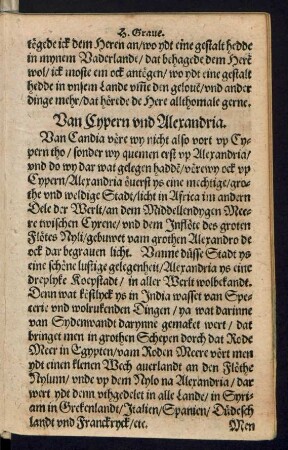 H. Graue.
tögede ick dem Heren an/wo ydt eine gestalt hedde
in mynem Vaderlande/ dat behagede dem Herē
wol/ ick moste em ock antögen/ wo ydt eine gestalt
hedde in vnsem Lande vm̄e den gelouē/ vnd ander
dinge mehr/dat hörede de Here allthomale gerne.
Van Cypern vnd Alexandria.
Van Candia vöre wy nicht also vort vp Cy-
pern tho / sonder wy quemen erst vp Alexandria/
vnd do wy dar wat gelegen haddē/ vörewy ock vp
Cypern/Alexandria öuerst ys eine mechtige/gro-
the vnd weldige Stadt/licht in Africa im andern
Dele der Werlt/an dem Middellendygen Mee-
re twischen Cyrene/ vnd dem Inflöte des groten
Flötes Nyli/gebuwet vam grothen Alexandro de
ock dar begrauen licht. Vmme düsse Stadt ys
eine schöne lustige gelegenheit/Alexandria ys eine
dreplyke Koepstadt / in aller Werlt wolbekandt.
Denn wat köstlyck ys in India wasset van Spe-
cerie vnd wolrukenden Dingen / ya wat darinne
van Sydenwandt darynne gemaket wert / dat
bringet men in grothen Schepen dorch dat Rode
Meer in Egypten/vam Roden Meere vört men
ydt einen klenen Wech auerlandt an den Flöthe
Nylum/ vnde vp dem Nylo na Alexandria/ dar
wert ydt denn vthgedelet in alle Lande/ in Syri-
am in Grekenlandt/Italien/Spanien/ Düdesch
landt vnd Franckryck/etc.
Men